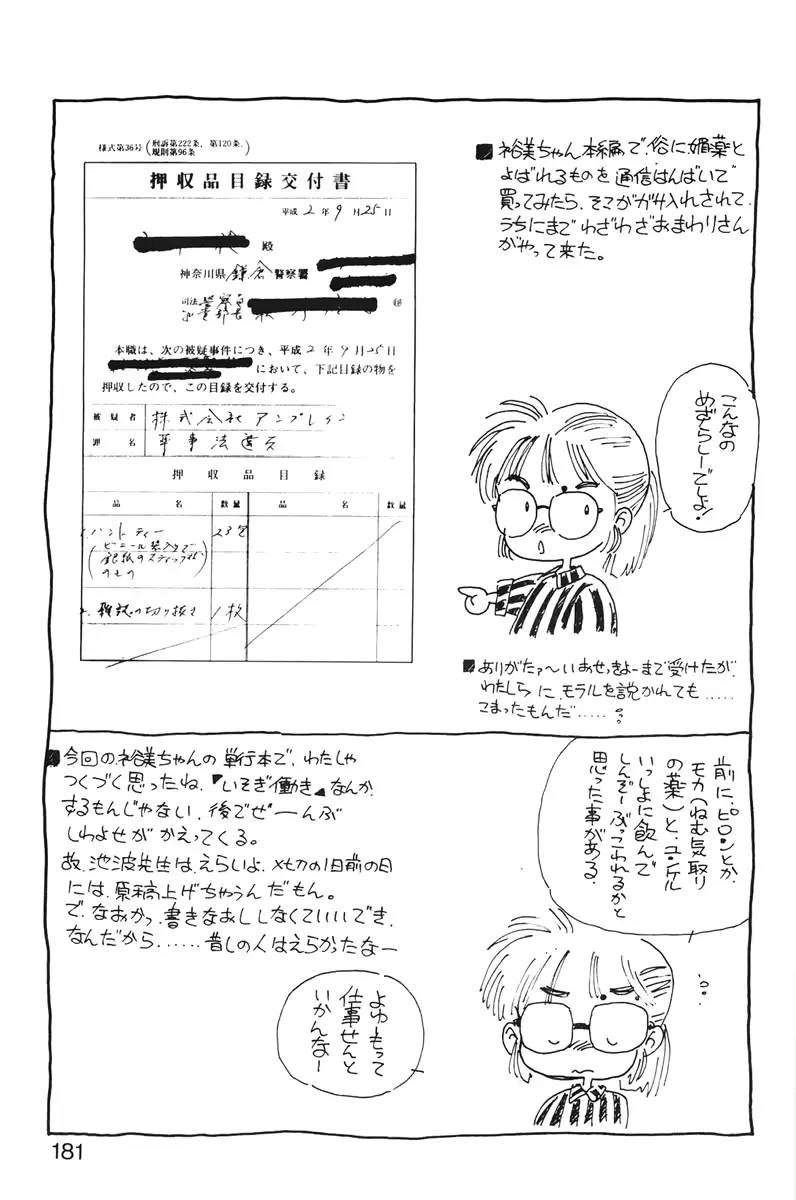 ■裕美ちゃん本編で、俗に媚薬と
よばれるものを通信はんばいで
買ってみたら、そこがガサ入れされて、
うちにまでわざわざおまわりさん
がやって来た。
様式第36号(刑訴第222条、第120条、
規則第96条)
押収品目録交付書
平成2年9月25日
殿
神奈川県鎌倉警察署
司法警察員
本職は、次の被疑事件につき、平成2年9月25日
において、下記目録の物を
押収したので、この目録を交付する。
被疑者 株式会社アンプレイン
罪名 薬事法違反
押収品目録
品名 数量 品名 数量
1. ハントティー 23包
(ビニール袋入り
銀紙のスティック状
のもの)
2. 雑誌の切り抜き 1枚
こんなの
めずらしーでしょ!
■ありがたァ〜いおせっきょーまで受けたが、
わたしらに、モラルを説かれても.....
こまったもんだ.....
前に、ピロンとか、
モカ(ねむ気取り
の薬)と、ユンケル
いっしょに飲んで
しんぞーぶっこわれるかと
思った事がある。
■今回の裕美ちゃんの単行本で、わたしゃ
つくづく思ったね、『いそぎ働き』なんか、
するもんじゃない、後でぜーんぶ
しわよせがかえってくる。
故、池波先生は、えらいよ、〆切の1日前の日
には、原稿上げちゃうんだもん。
で、なおかつ、書きなおししなくていいでき、
なんだから、......昔しの人はえらかったなー
よゆもって
仕事せんと
いかんなー
181